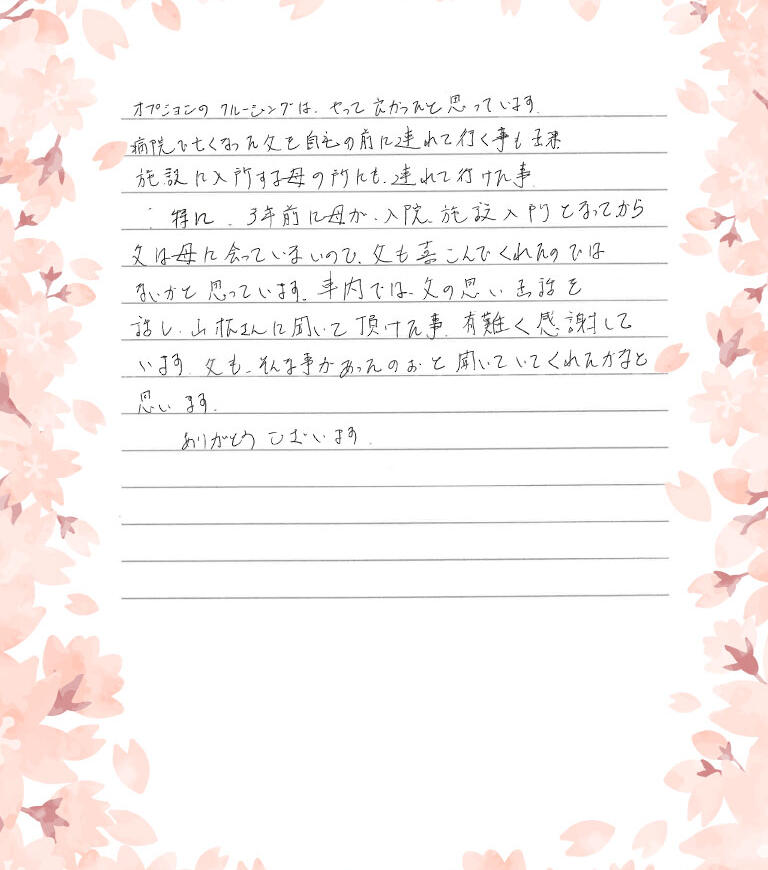 オプションのクルージングは、やって良かったと思っています。
病院で亡くなった父を自宅の前に連れて行く事も出来
施設に入所する母の所にも、連れて行けた事。
特に、3年前に母が、入院、施設入所となってから
父は母に会っていないので、父も喜こんでくれたのでは
ないかと思っています。車内では、父の思い出話を
話し、山松さんに聞いて頂けた事、有難く感謝して
います。父も、そんな事があったのおと聞いていてくれたかなと
思います。
ありがとうございます。